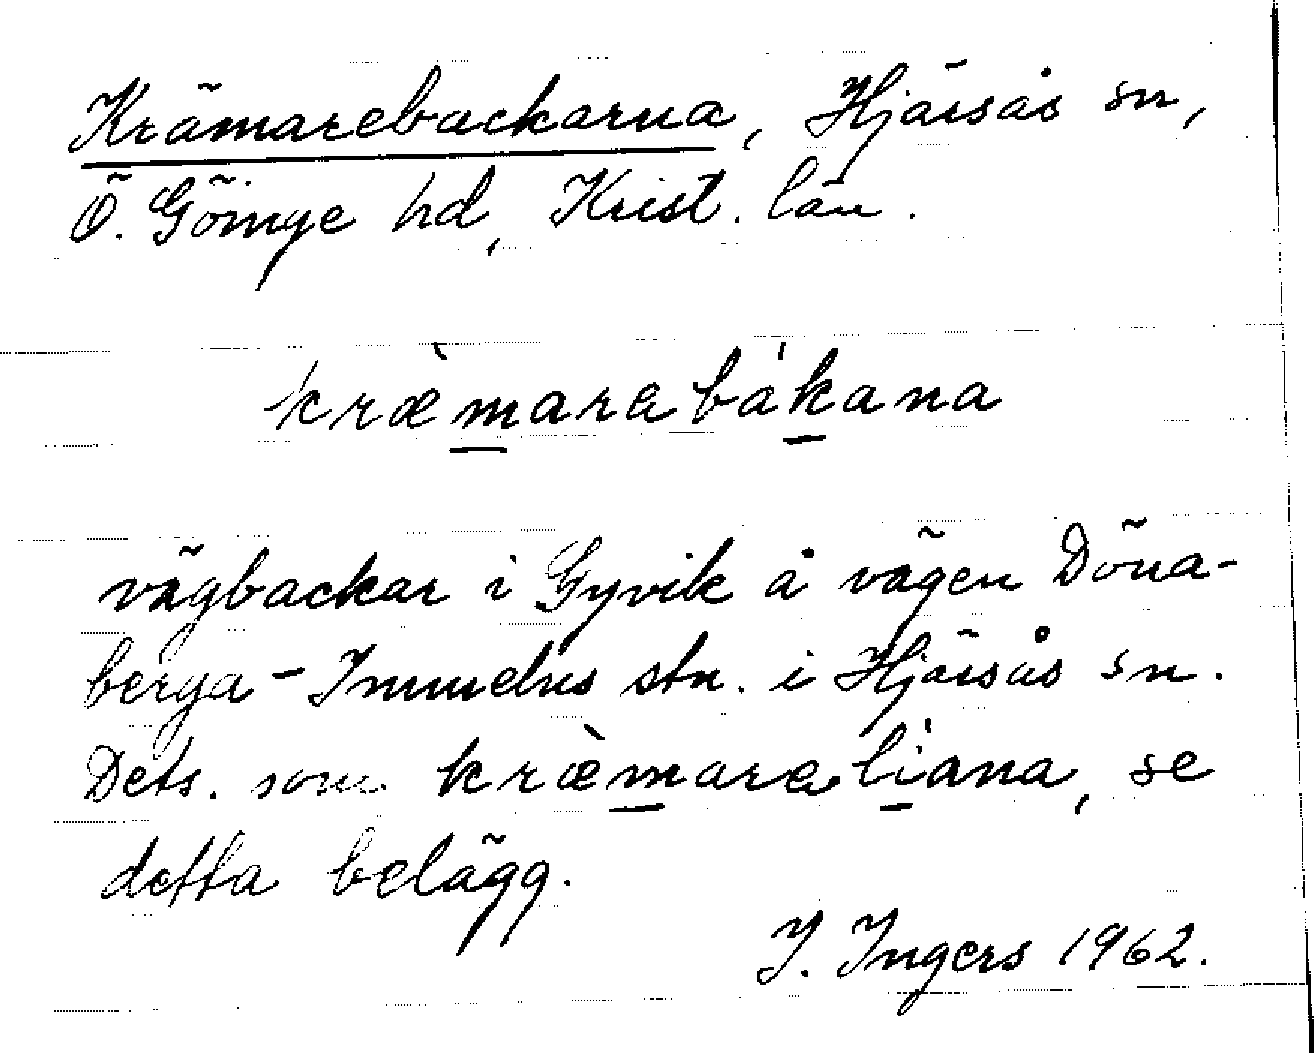 Krämarebackarna, Hjärsås sn,
Ö. Göinge hd, Krist. län.
kræ̀marabákana
vägbackar i Gyvik å vägen Döna-
berga - Immelns stn. i Hjärsås sn.
Dets. som kræ̀maralíana, se
detta belägg.
I. Ingers 1962.